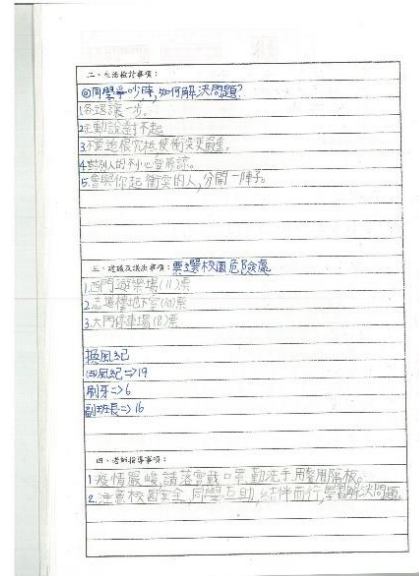 二、生活檢討事項：
◎同學爭吵時,如何解決問題?
1.各退讓一步。
2.主動說對不起
3.不要追根究柢使衝突更嚴重。
4.對別人的不小心要原諒。
5.會與你起衝突的人,分開一陣子。
三、建議及議決事項：票選校園危險處
1.西門遊樂場(11)票
2.志道樓地下室(10)票
3.大門停車場(8)票
換風紀
風紀=>19
刷牙=>6
副班長=>16
四、老師指導事項：
1.疫情嚴峻,請落實戴口罩,勤洗手用餐用隔板。
2.注意校園安全,同學互助,結伴而行,學習解決問題。